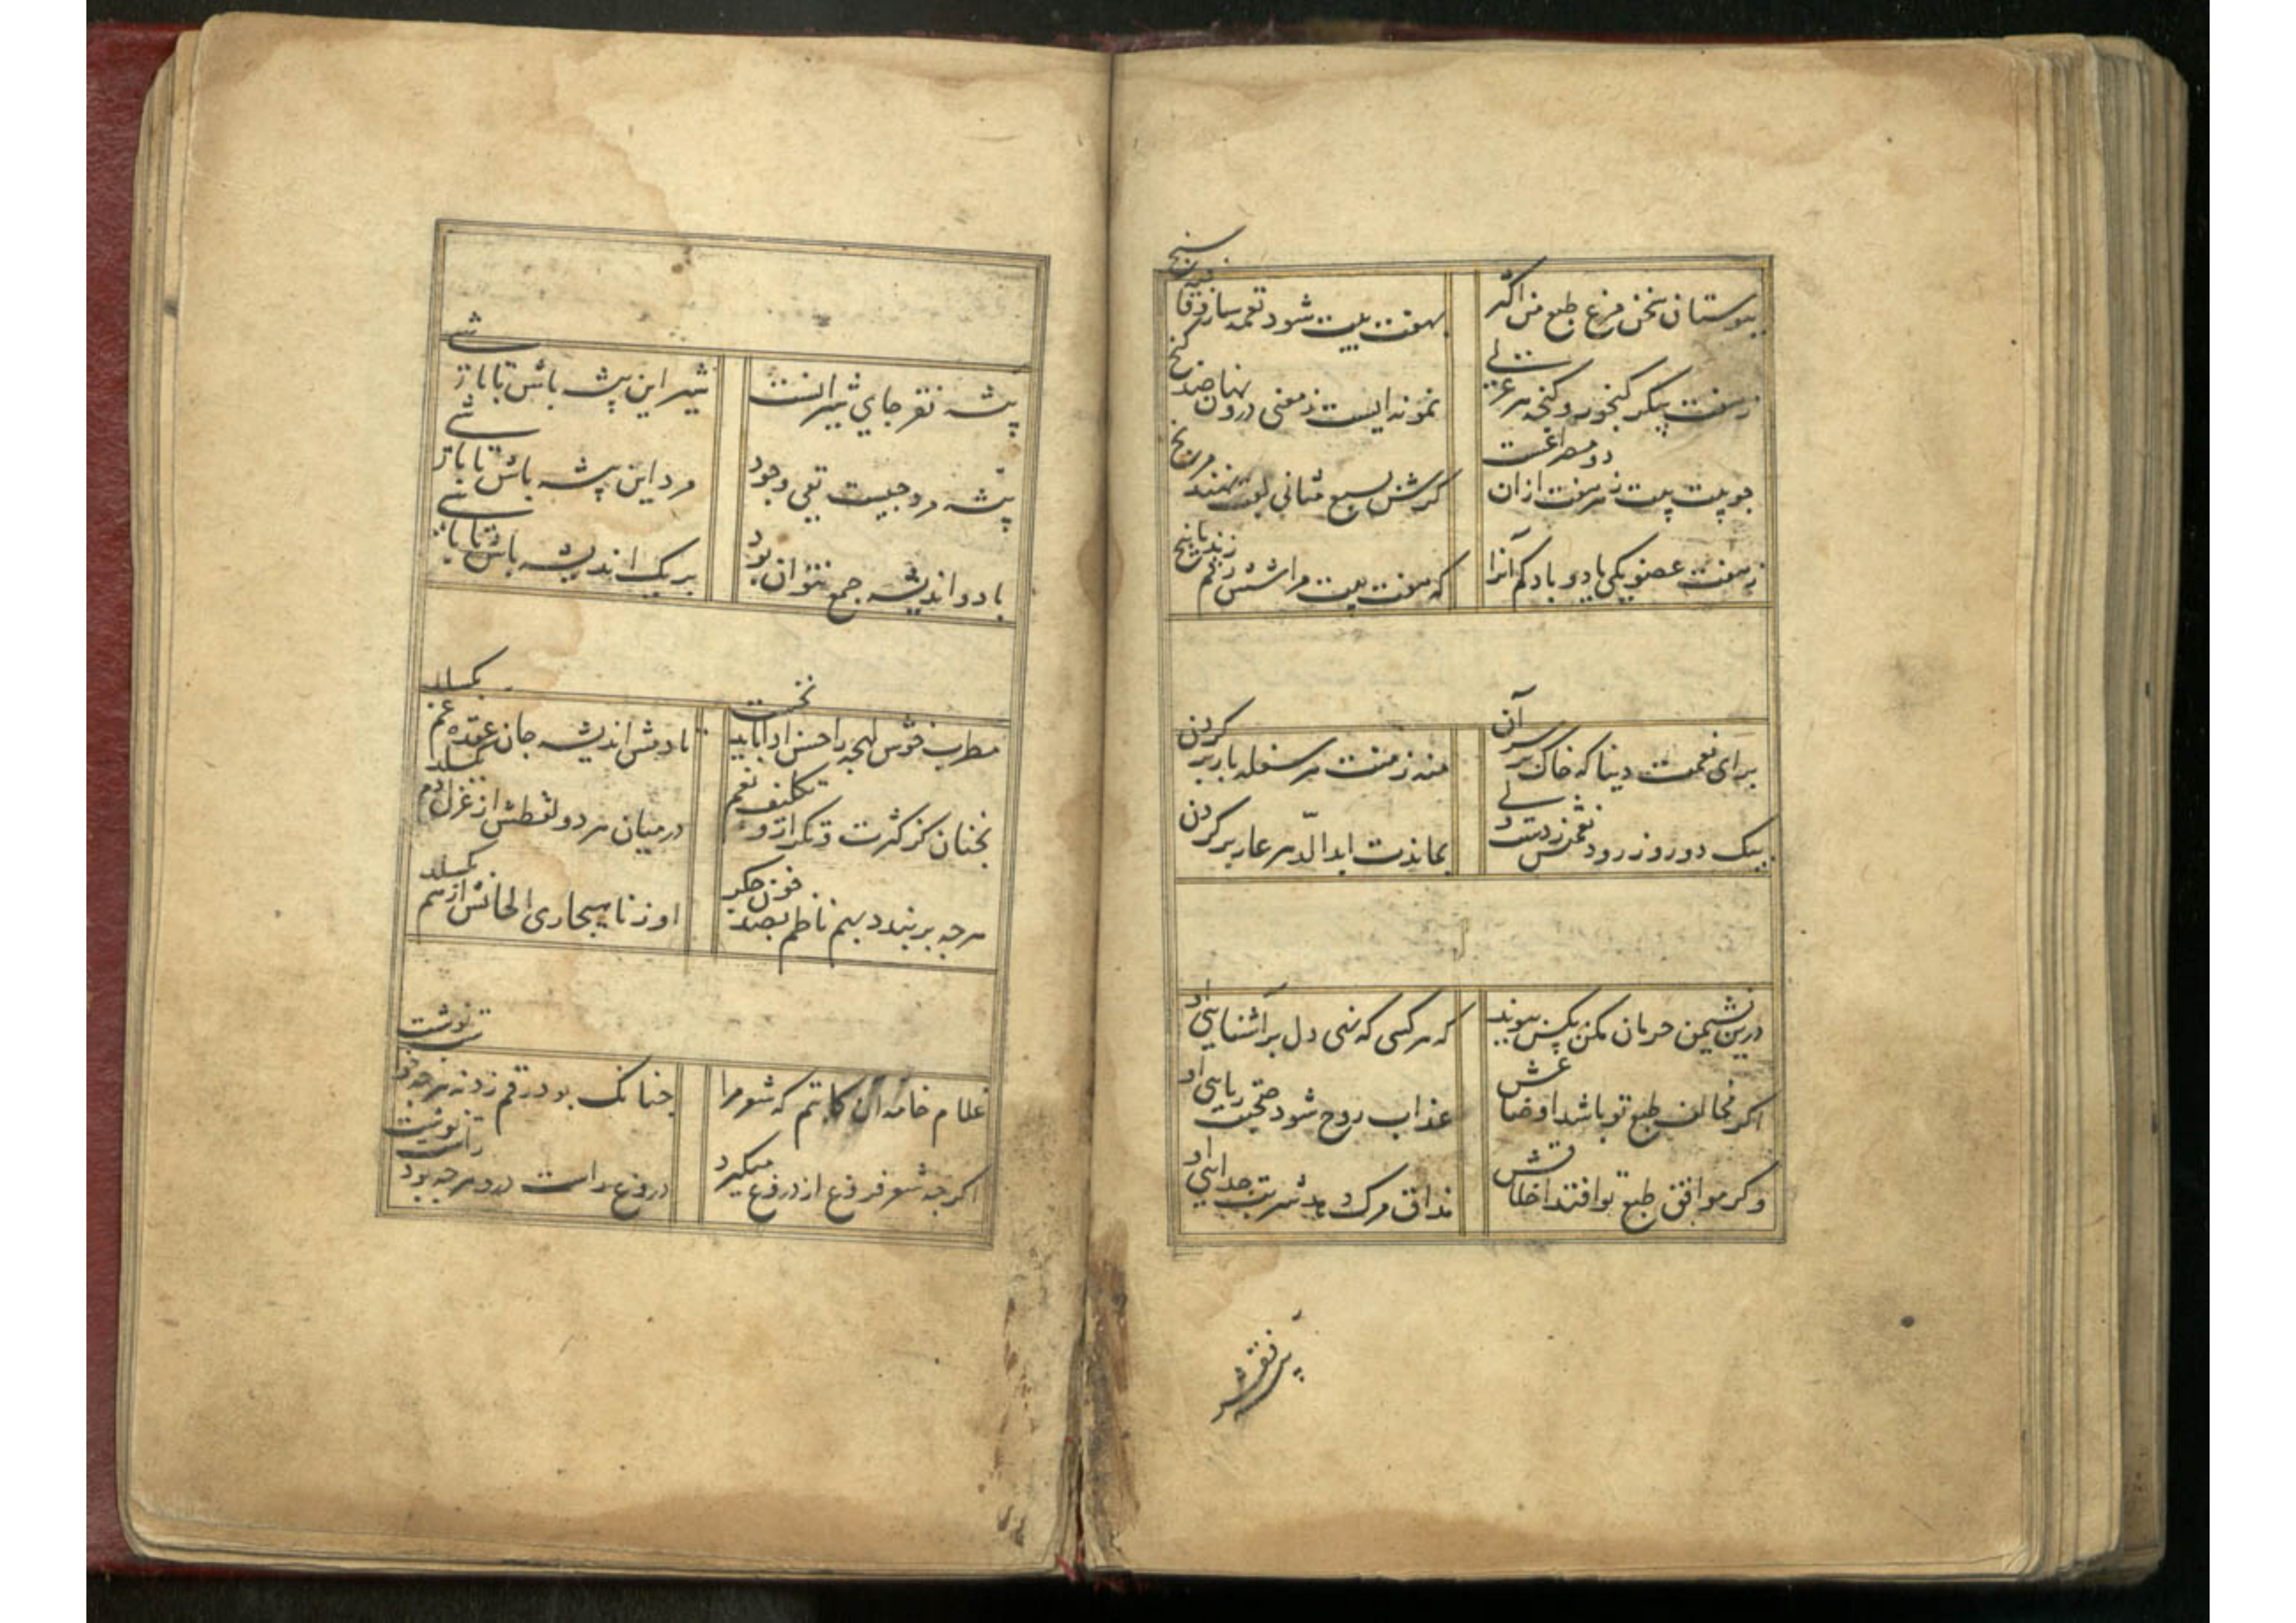 ببوستان سخن مرغ طبع من اکثر
بهفت بیت شود نغمه ساز و قافیه سنج
نمونه ایست ز معنی درون نهان صد کنج
چو بیت بیت ز هر هفت ازان دو مصراعست
کرش بسبع مثانی لقب نهند مرنج
ز هفت عضو یکی یا دو باد کم آنرا
که هفت بیت مرا شش رقم زند یا پنج
برای نعمت دنیا که خاک بر سر آن
منه ز منت هر سفله بار بر کردن
بیک دو روز رود نعمتش ز دست ولی
بماندت ابد الدهر عار بر کردن
درین نشیمن حرمان مکن بکس پیوند
که هر کسی که نهی دل بر آشنایی او
اکر مخالف طبع تو باشد اوضاعش
عذاب روح شود صحبت ریایی او
وکر موافق طبع تو افتد اخلاقش
مذاق مرک دهد شربت جدایی او
بیشه فقر
بیشه فقر جای شیرانست
شیر این بیشه باش تا باشی
پیشه مرد چیست نفی وجود
مرد این پیشه باش تا باشی
با دو اندیشه جمع نتوان بود
بر یک اندیشه باش تا باشی
مطرب خوش لهجه را حسن ادا باید نخست
تا دمش اندیشه جان عقده غم بکسلد
نی چنان کز کثرت تکرار و تکلیف نغم
در میان هر دو لفظش از غزل دم بکسلد
هرچه بربندد بهم ناظم بصد خون جکر
او ز ناهنجاری الحانش از هم بکسلد
غلام خامه آن کاتبم که شعر مرا
چنانکه بود رقم زد نه هرچه خواست نوشت
اکرچه شعر فروغ از دروغ میکیرد
دروغ راست درو هرچه بود راست نوشت